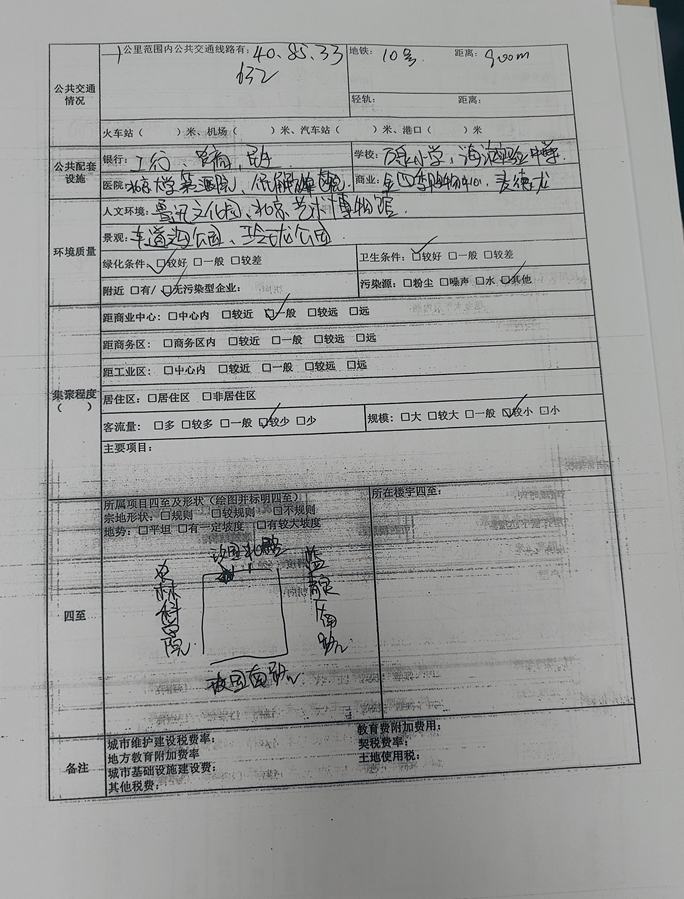 公共交通情况
一公里范围内公共交通线路有: 40. 85. 33
632
地铁: 10号 距离: 900m
轻轨: 距离:
火车站( )米、机场( )米、汽车站( )米、港口( )米
公共配套设施
银行: 工行、
学校: 小学,
医院: 北京大学第三医院、
商业: 金四季购物中心. 麦德龙
环境质量
人文环境: 鲁迅文化园、北京艺术博物馆.
景观: 车道沟公园、玲珑公园
绿化条件: □较好 □一般 □较差
卫生条件: □较好 □一般 □较差
附近 □有/ □无污染型企业:
污染源: □粉尘 □噪声 □水 □其他
集聚程度( )
距商业中心: □中心内 □较近 □一般 □较远 □远
距商务区: □商务区内 □较近 □一般 □较远 □远
距工业区: □中心内 □较近 □一般 □较远 □远
居住区: □居住区 □非居住区
客流量: □多 □较多 □一般 □较少 □少
规模: □大 □较大 □一般 □较小 □小
主要项目:
四至
所属项目四至及形状(绘图并标明四至)
所在楼宇四至:
宗地形状: □规则 □较规则 □不规则
地势: □平坦 □有一定坡度 □有较大坡度
农林科学院
蓝靛厂南路
备注
城市维护建设税费率:
教育费附加费用:
地方教育附加费率
契税费率:
城市基础设施建设费:
土地使用税:
其他税费: